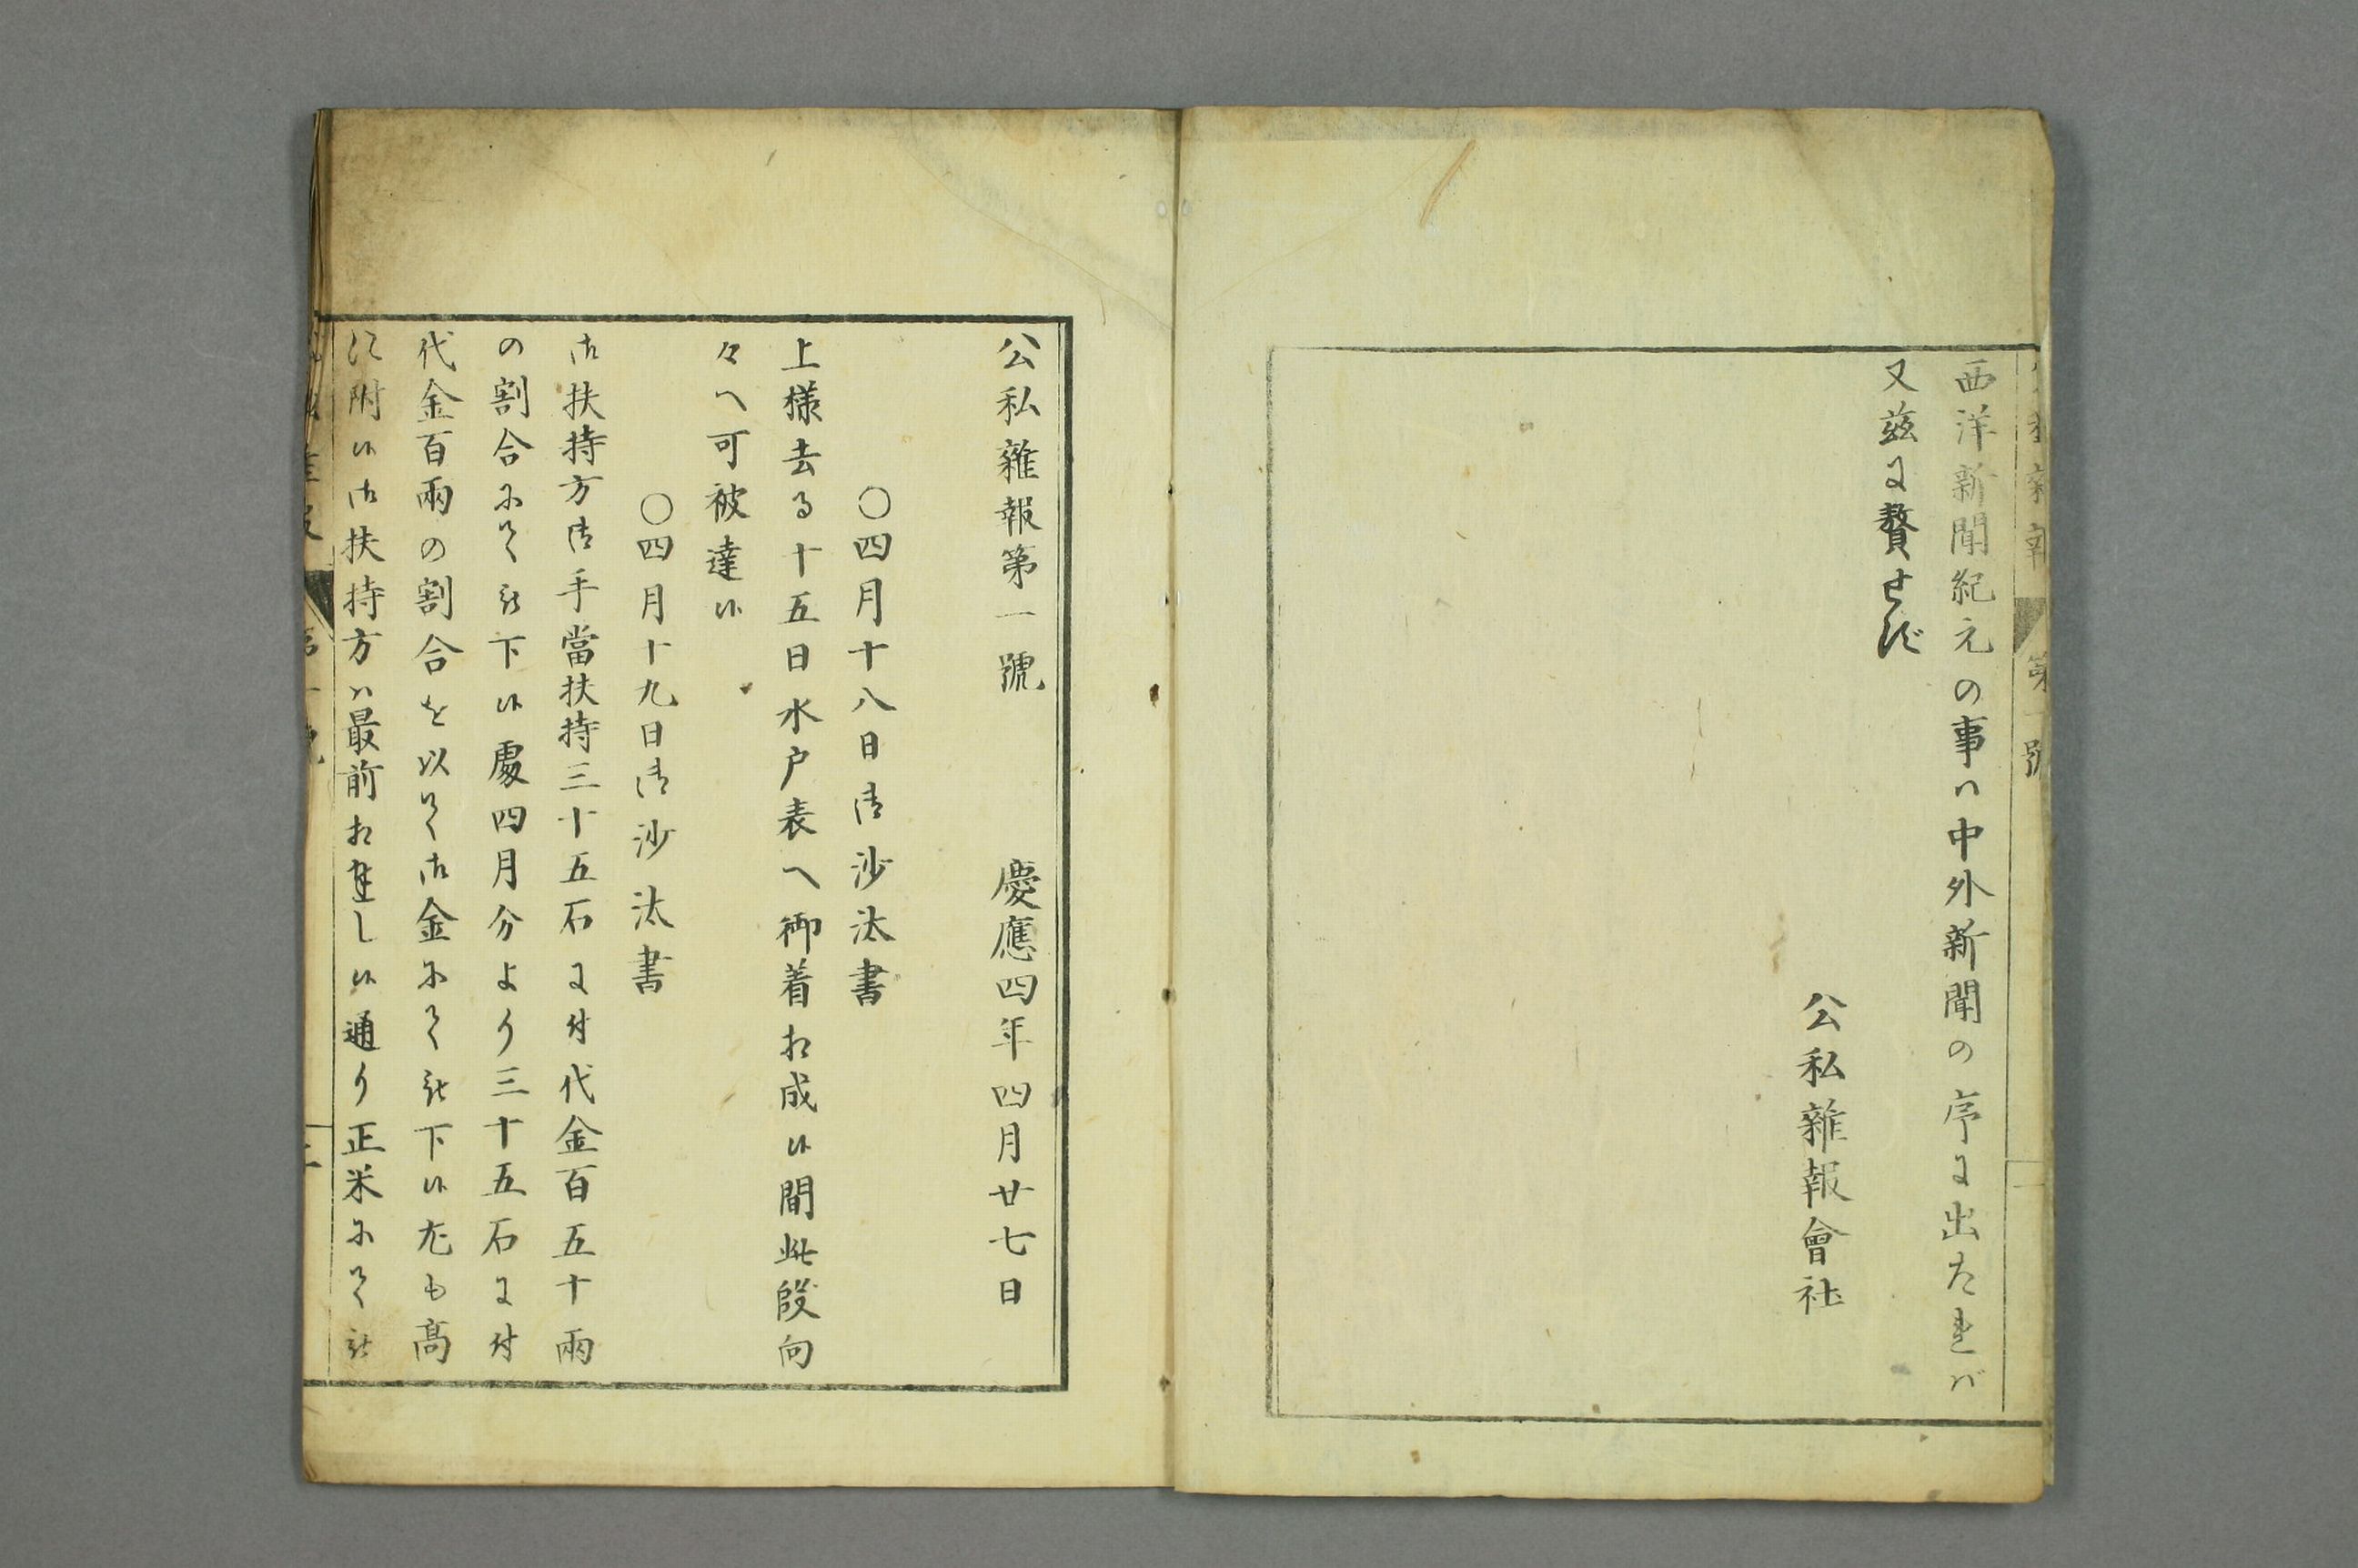 西洋新聞紀元の事ハ中外新聞の序に出たれバ
又茲に贅せず
公私雜報會社
公私雜報第一號　慶應四年四月廿七日
〇四月十八日御沙汰書
上様去る十五日水戸表へ御着相成候間此段向
々へ可被達候
〇四月十九日御沙汰書
御扶持方御手當扶持三十五石に付代金百五十兩
の割合にて被下候處四月分より三十五石に付
代金百兩の割合を以て御金にて被下候尤も高
に附候御扶持方ハ最前相達し候通り正米にて被